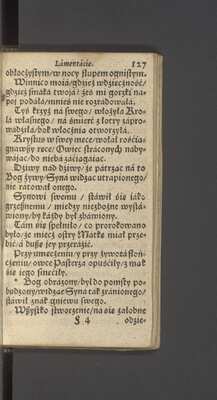 Lámentácie. 127
obłoczystym/ w nocy słupem ognistym.
Winnico moiá/ gdzież wdzieczność/
gdzież smáká twojá? żeś mi gorzki ná-
poj podáłá/ mnieś nie rozrádowáłá.
Tyś krzyż ná swego/ włożyłá Kro-
lá własnego/ ná śmierć z łotry záprо-
wádziłá/ bok włocznią otworzyłá.
Krystus w swey mece/ wołał rościąg
gnąwszy rece/ Owiec stráconych náby-
wájąc/ do niebá záciągájąc.
Dziwy nád dziwy/ że pátrząc ná to
Bog żywy/ Syná widząc utrapionego/
nie rátował onego.
Synowi swemu/ stáwił się iáko
grzesznemu/ miedzy niezbożne wystá-
wiony/ by káżdy był zbáwiony.
Tám się spełniło/ co prorokowano
było/ że miecz ostry Mátkę miał prze-
bić/ á duszę jey przerázić.
Przy umęczeniu/ y przy żywotá skoń-
czeniu/ owce Pásterzá opuściły/ z mąk
się iego śmieiły.
* Bog obráżony/ był do pomsty po-
budzony/ widząc Syná ták zránionego/
stáwił znák gniewu swego.
Wszystko stworzenie/ ná się żáłobne
§ 4 odzie-